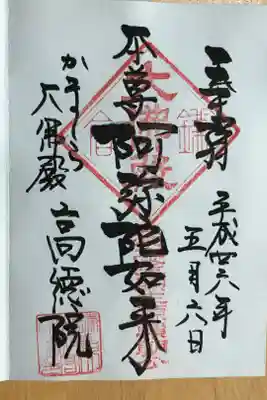 奉拝
平成廿六年
五月六日
本尊阿弥陀如来
かまくら
大佛殿
高徳院